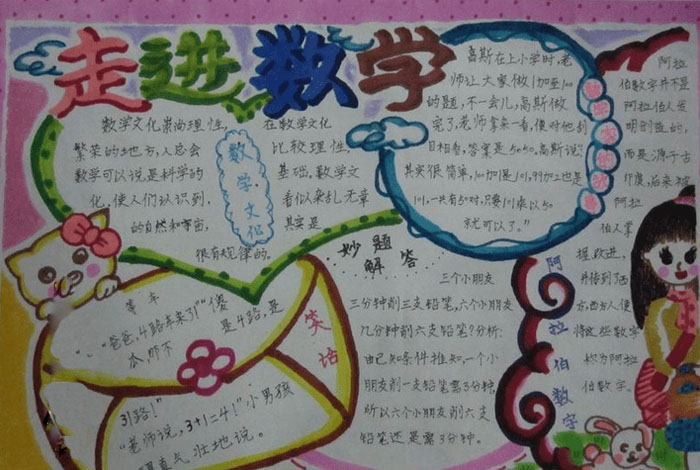 走进数学
数学文化崇尚理性,
繁荣的地方,人总会
数学可以说是科学的
化,使人们认识到,
的自然和宇宙,
很有规律的。
数学文化
在数学文化
比较理性,
基础,数学文
看似杂乱无章
其实是
高斯在上小学时,老
师让大家做1加至100
的题,不一会儿,高斯做
完了,老师拿来一看,便对他刮
目相看,答案是5050,高斯说:"
其实很简单,100加1是101,99加2也是
101,一共有50对,只要101乘以50
就可以了。"
阿拉
伯数字并不是
阿拉伯人发
明创造的,
而是源于古
印度,后来被
阿拉
伯人掌
握、改进,
并传到了西
方,西方人便
将这些数字
称为阿拉
伯数字。
阿拉伯数字
妙题
解答
三个小朋友
三分钟削三支铅笔,六个小朋友
几分钟削六支铅笔?分析:
由已知条件推知,一个小
朋友削一支铅笔需3分钟,
所以六个小朋友削六支
铅笔还是需3分钟。
笑话
等车
"爸爸,4路车来了!""傻
瓜,那不
是4路,是
31路!"
"老师说,3+1=4!"小男孩
理直气壮地说。